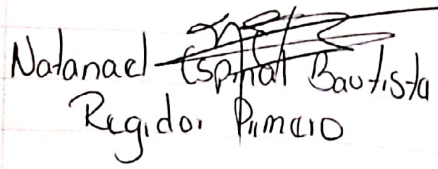 Natanael Espinal Bautista
Regidor Primero